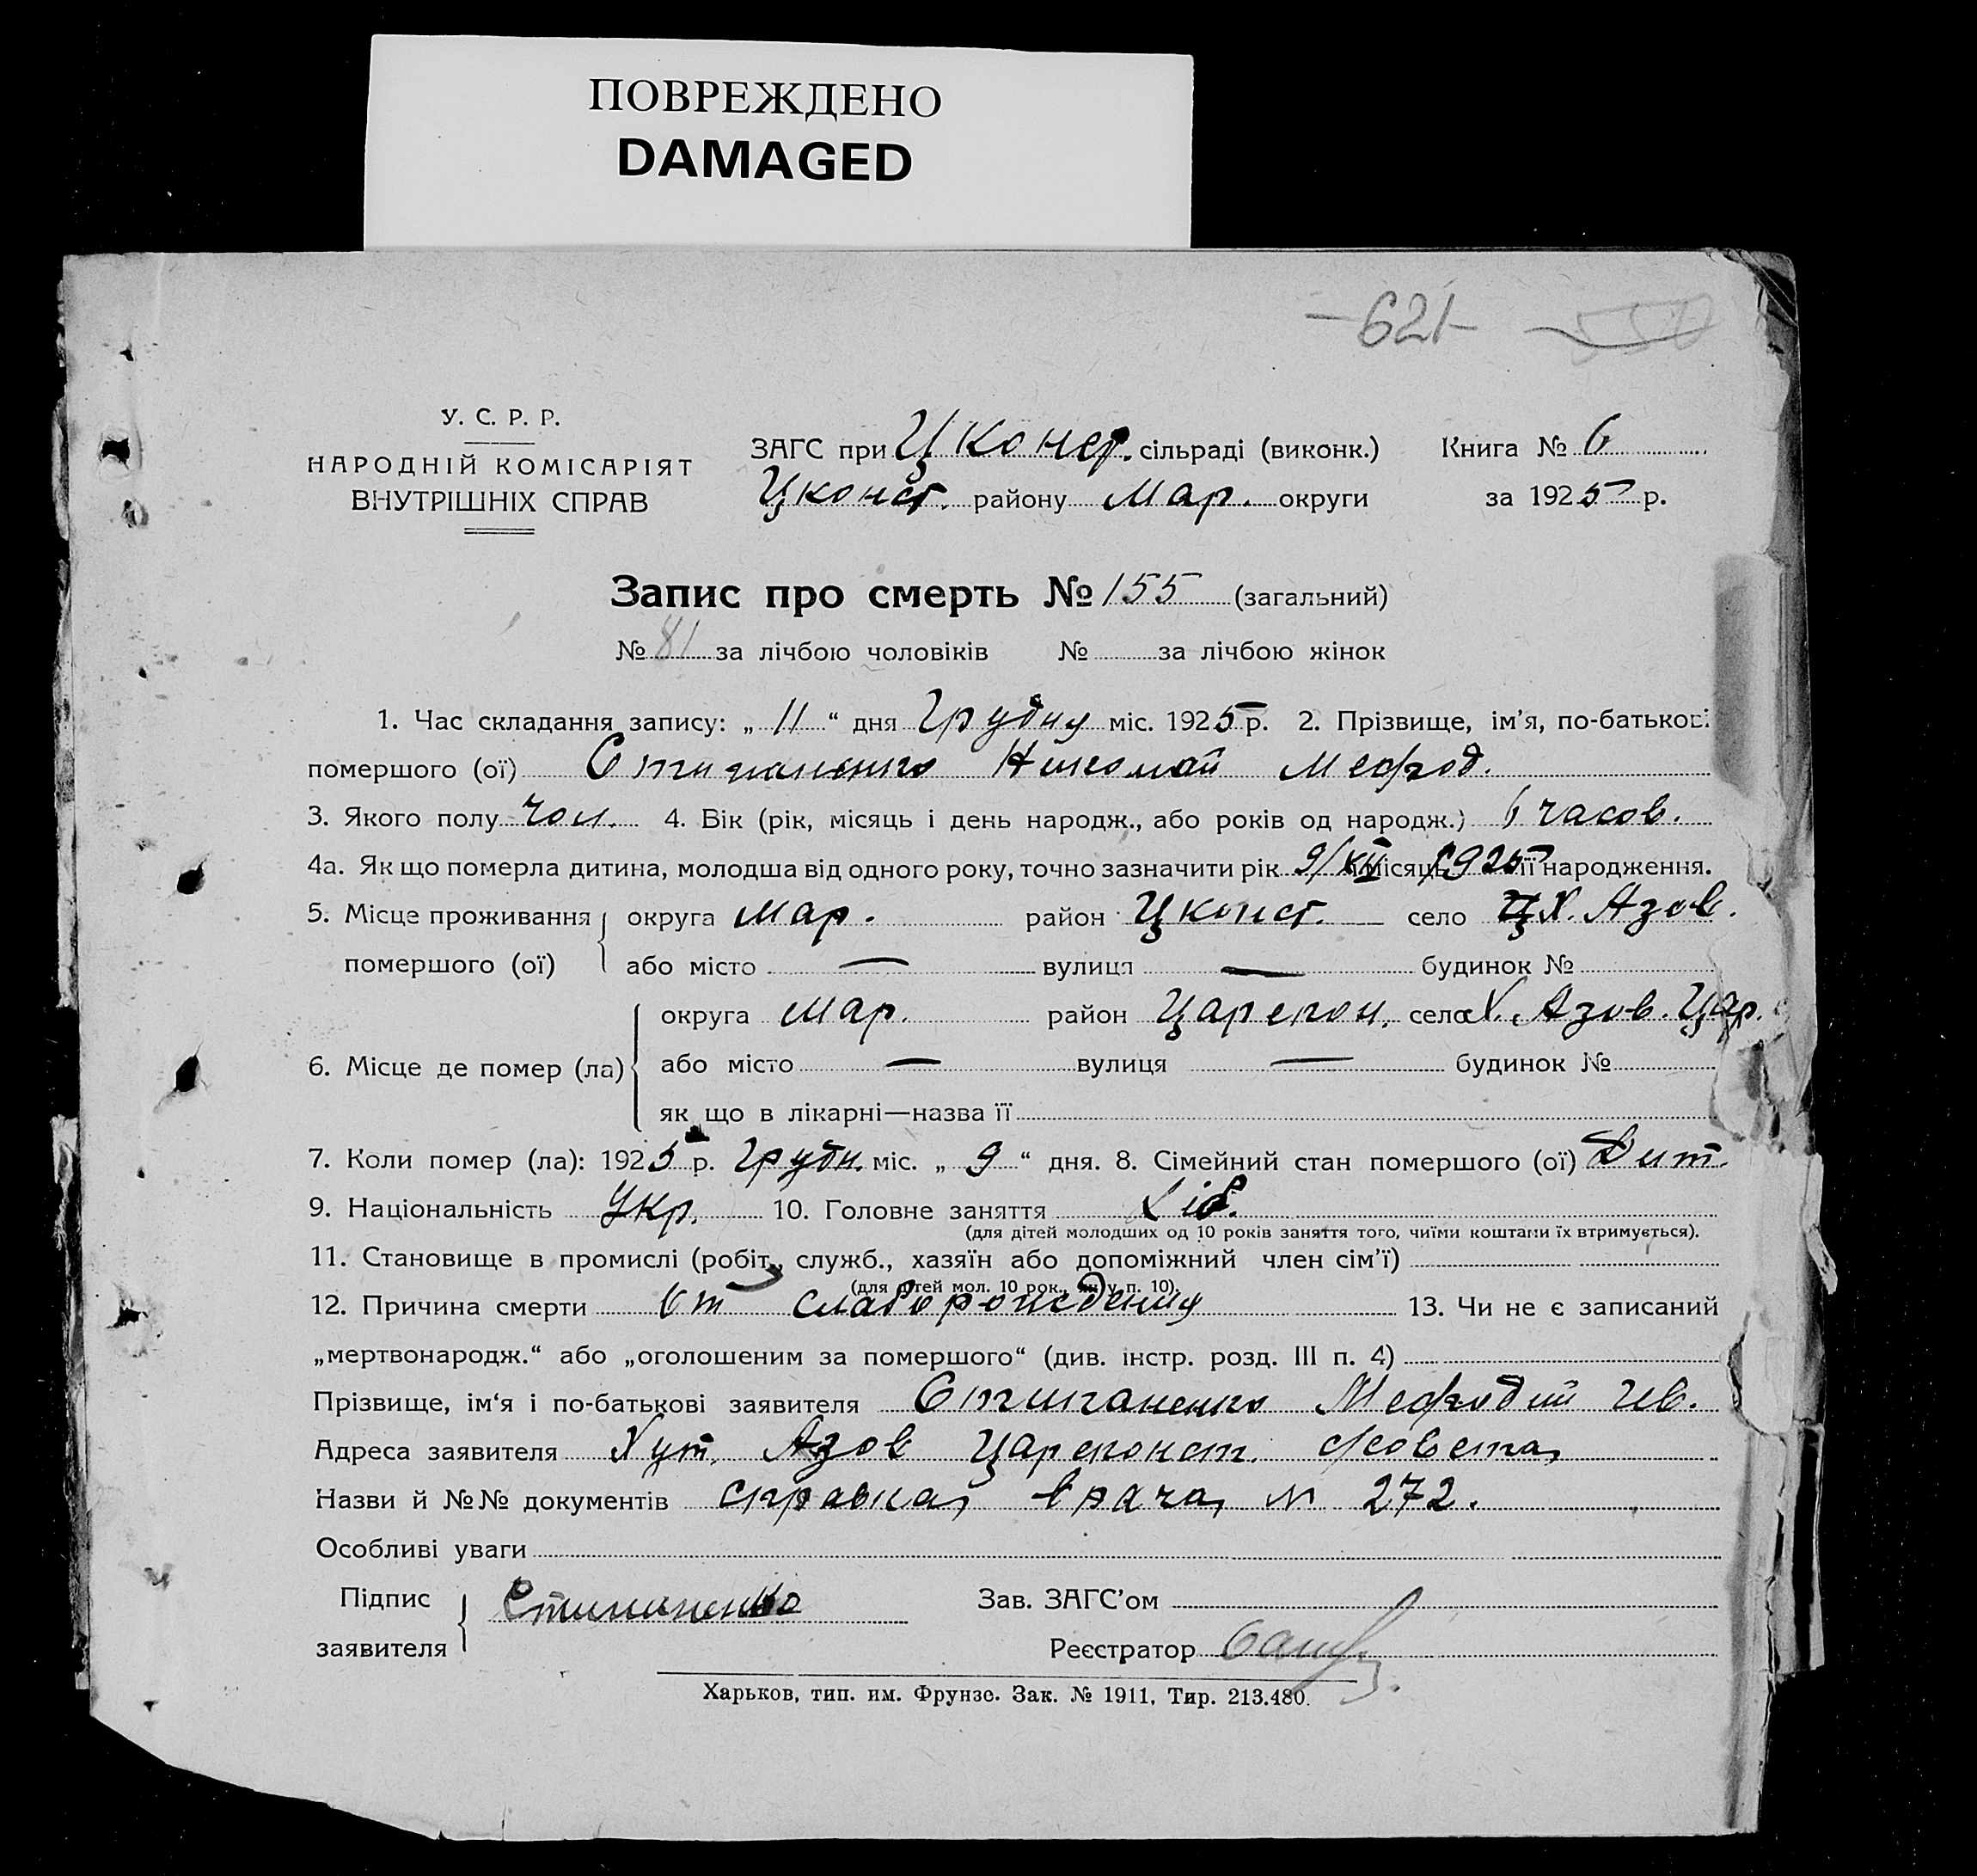 ПОВРЕЖДЕНО
DAMAGED
-621-
У. С. Р. Р.
НАРОДНІЙ КОМІСАРІЯТ
ВНУТРІШНІХ СПРАВ
ЗАГС при Цконст. сільраді (виконк.) Книга № 6
Цконст. району Мар. округи за 1925 р.
Запис про смерть № 155 (загальний)
№ 81 за лічбою чоловіків № за лічбою жінок
1. Час складання запису: „ 11 “ дня Грудня міс. 1925 р. 2. Прізвище, ім’я, по-батькові
помершого (ої) Николай Мефод.
3. Якого полу чол. 4. Вік (рік, місяць і день народж., або років од народж.) 6 часов.
4а. Як що померла дитина, молодша від одного року, точно зазначити рік 9/XII місяць 1925 її народження.
5. Місце проживання округа Мар. район Цконст. село Х. Азов.
помершого (ої) або місто — вулиця — будинок №
округа Мар. район Царекон. село Х. Азов. Цар.
6. Місце де помер (ла) або місто — вулиця — будинок №
як що в лікарні—назва її
7. Коли помер (ла): 1925 р. Грудн. міс. „ 9 “ дня. 8. Сімейний стан помершого (ої) Дит.
9. Національність Укр. 10. Головне заняття Хліб.
(для дітей молодших од 10 років заняття того, чиїми коштами їх втримується).
11. Становище в промислі (робіт., служб., хазяїн або допоміжний член сім’ї)
(для дітей мол. 10 рок., як у п. 10).
12. Причина смерти От слаборождения 13. Чи не є записаний
„мертвонародж.“ або „оголошеним за помершого“ (див. інстр. розд. III п. 4)
Прізвище, ім‘я і по-батькові заявителя Мефодий Ив.
Адреса заявителя Хут. Азов Цареконст. с/совета
Назви й №№ документів справка врача № 272.
Особливі уваги
Підпис
заявителя
Зав. ЗАГС’ом
Реєстратор
Харьков, тип. им. Фрунзе. Зак. № 1911, Тир. 213.480.